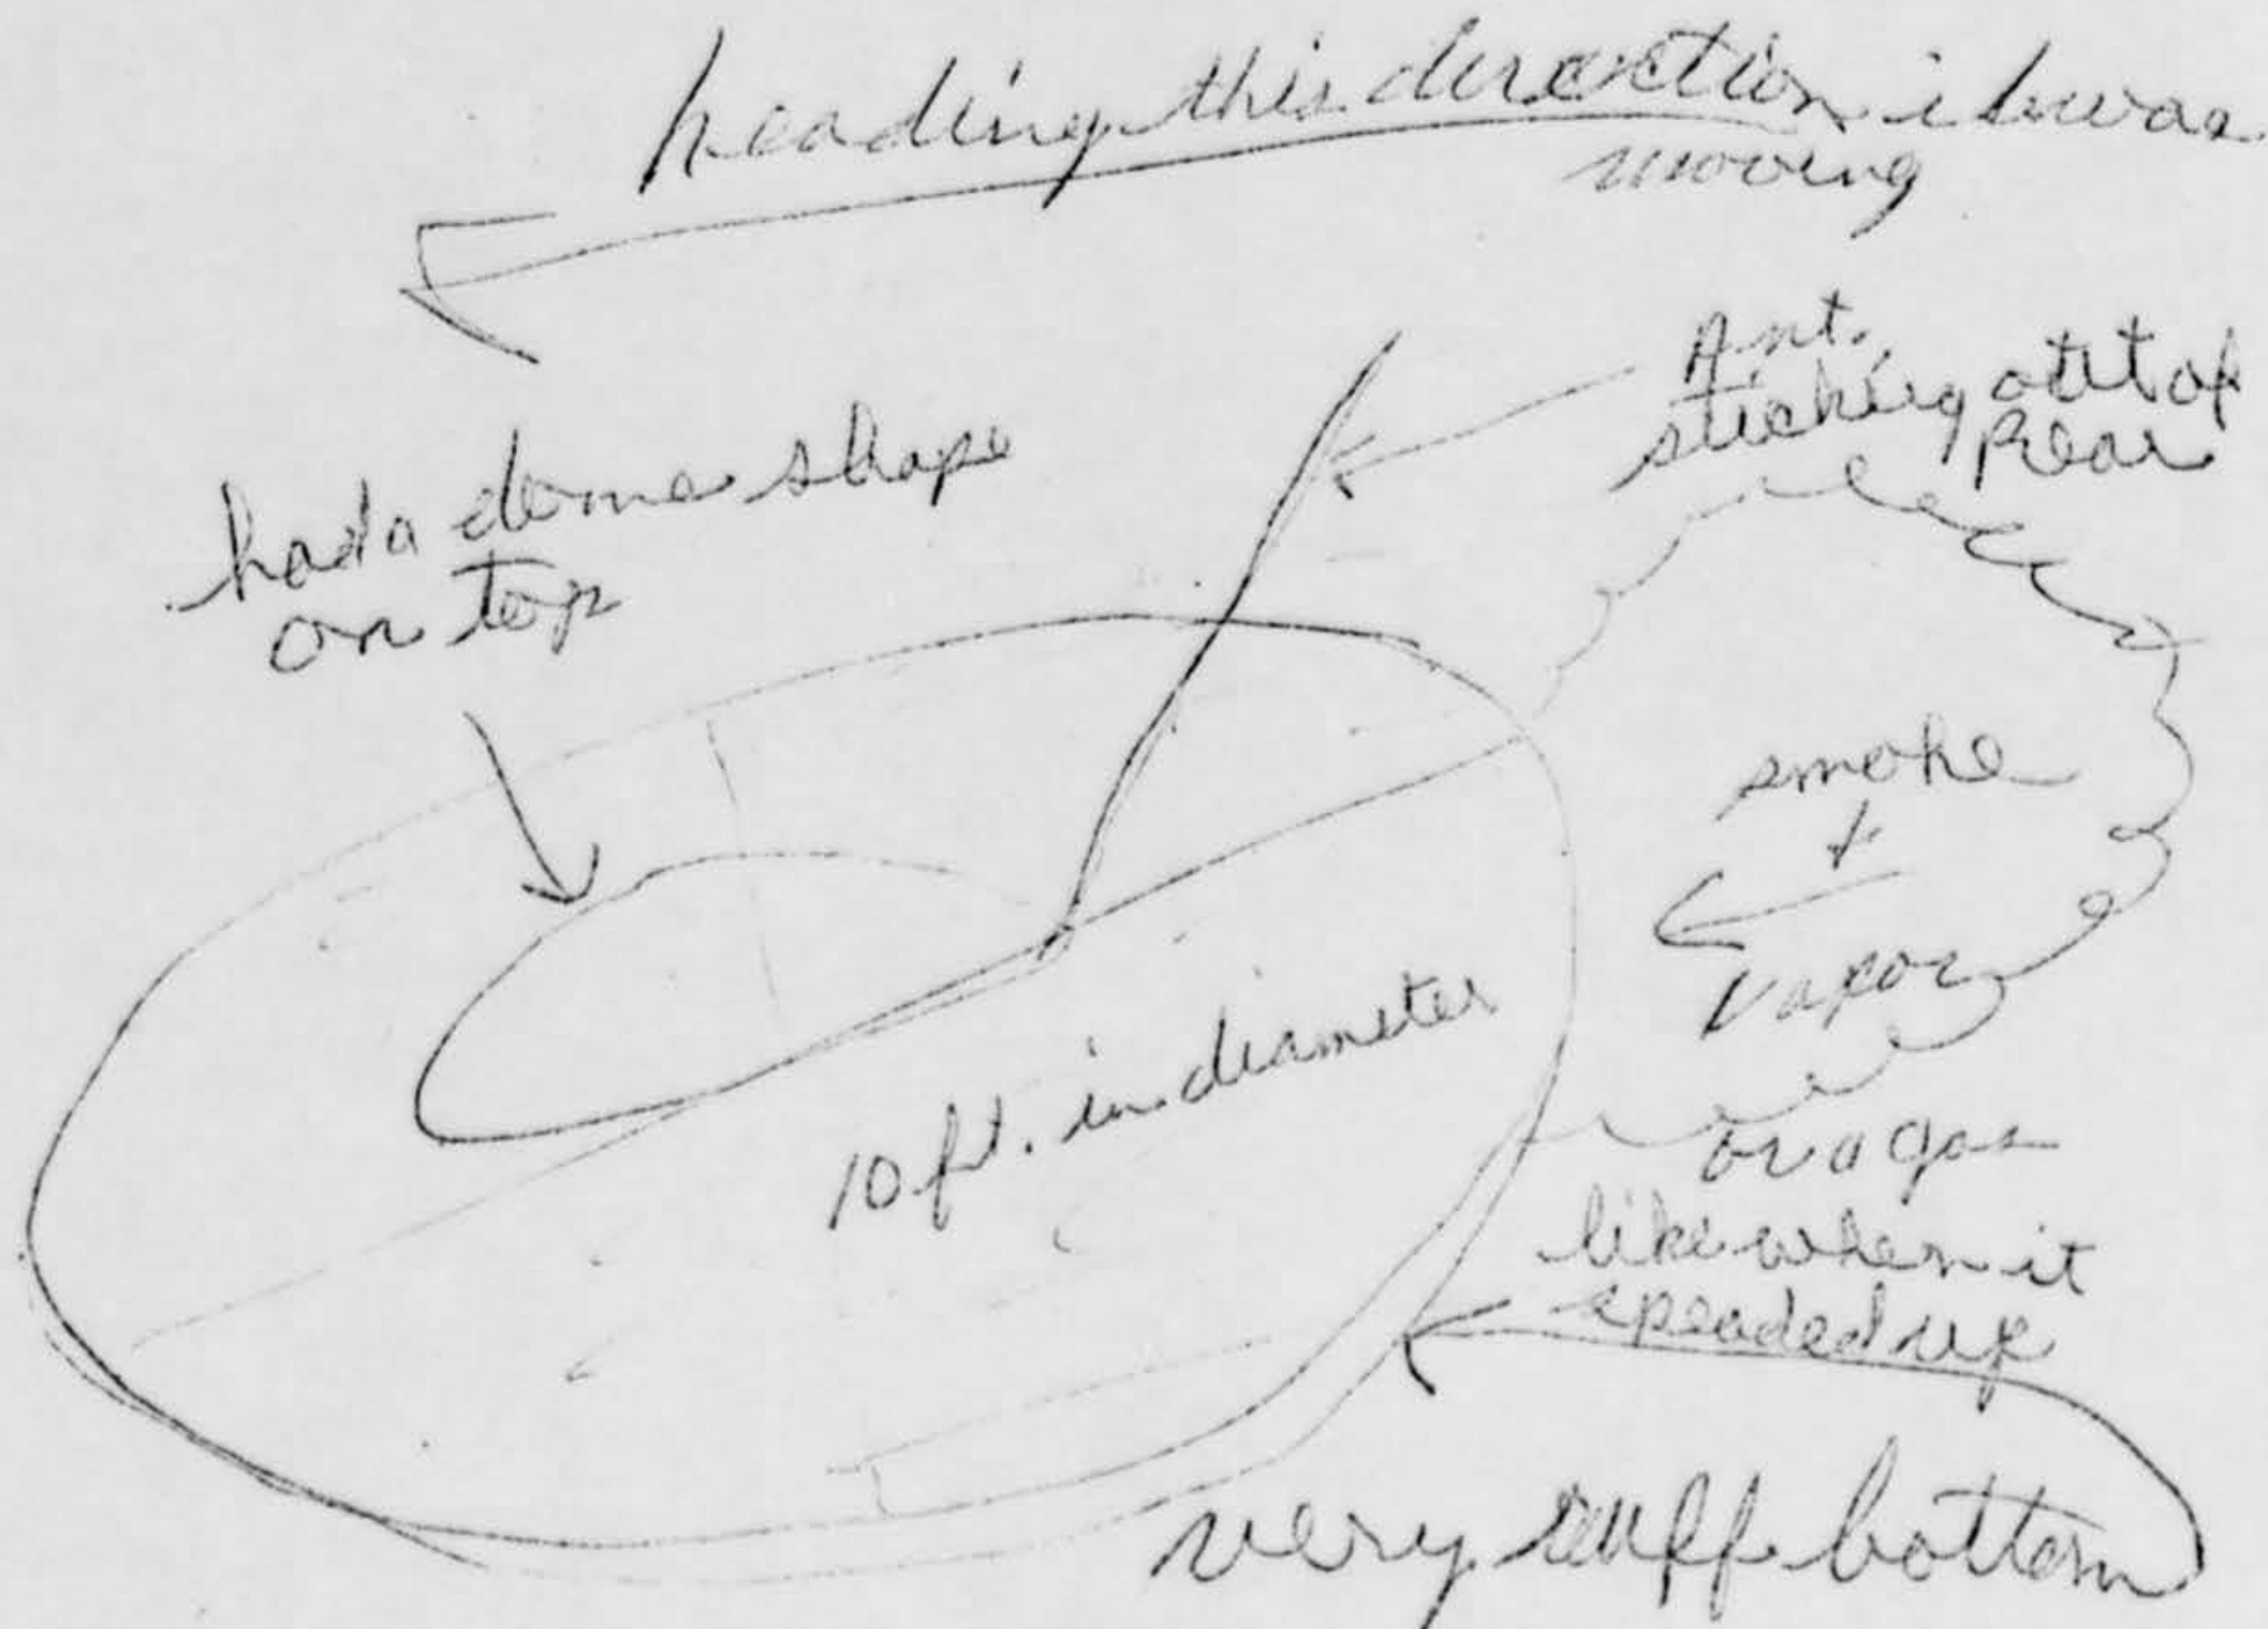 heading this direction it was
moving
Ant.
sticking out of
Rear
had a dome shape
on top
smoke
+
vapor
or a gas
like when it
speaded up
10 ft. in diameter
very ruff bottom